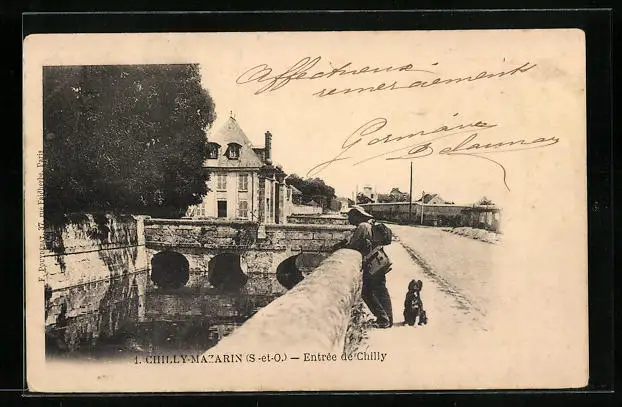 Affectueux
remerciements
Germaine
Delaunay
1. CHILLY-MAZARIN (S-et-O.) — Entrée de Chilly
37, rue Faidherbe, Paris